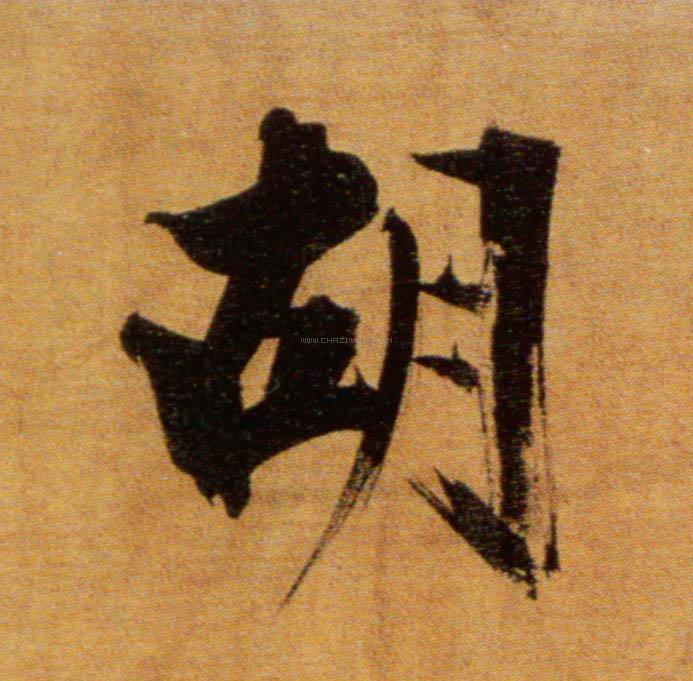 胡
WWW.CHAZIWANG.COM